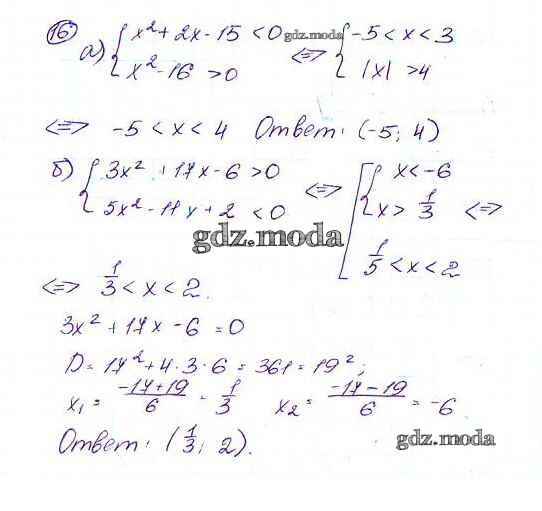 16
а) { x² + 2x - 15 < 0 gdz.moda <=> { -5 < x < 3
x² - 16 > 0 |x| > 4
<=> -5 < x < 4 Ответ: (-5; 4)
б) { 3x² + 17x - 6 > 0 <=> [ { x < -6
5x² - 11x + 2 < 0 x > 1/3 <=>
gdz.moda
1/5 < x < 2
<=> 1/3 < x < 2.
3x² + 17x - 6 = 0
D = 17² + 4 · 3 · 6 = 361 = 19²;
x₁ = (-17+19)/6 = 1/3 x₂ = (-17-19)/6 = -6
Ответ: (1/3; 2).
gdz.moda